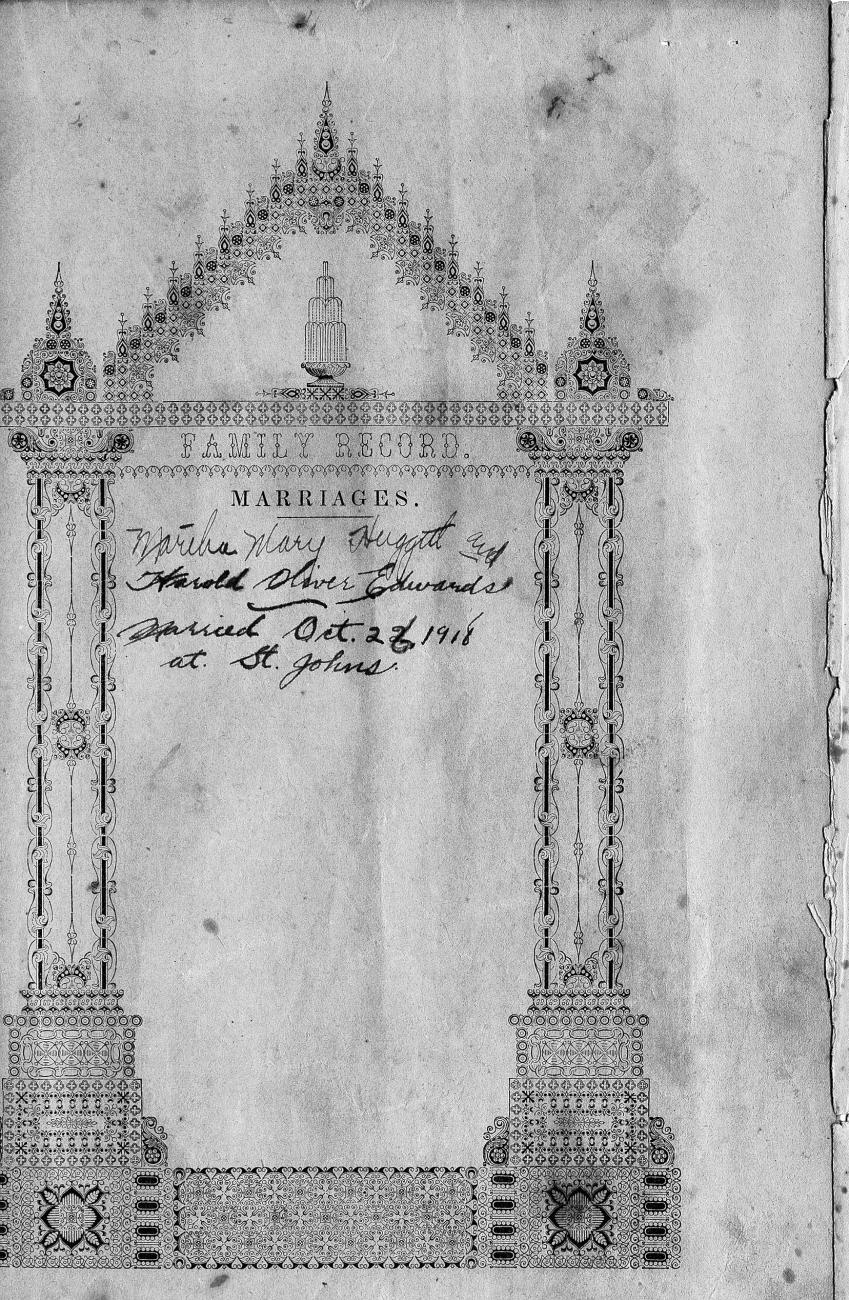 FAMILY RECORD.
MARRIAGES.
Martha Mary Huggett and
Harold Oliver Edwards
Married Oct. 1918
at. St. Johns.